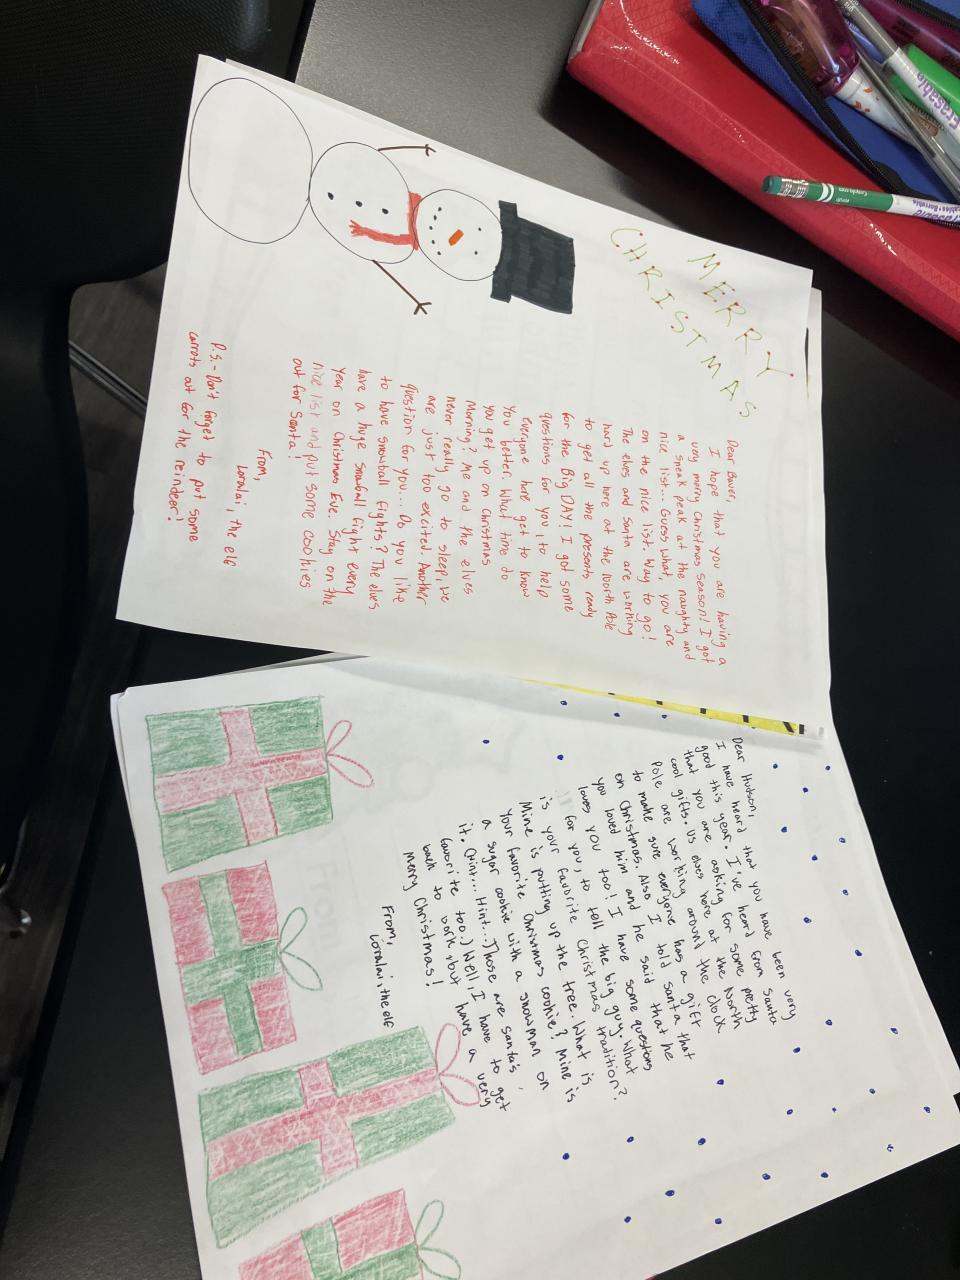 MERRY
CHRISTMAS
Dear Baver,
I hope that you are having a
very merry Christmas season! I got
a sneak peak at the naughty and
nice list... Guess what, you are
on the nice list. Way to go!
The elves and Santa are working
hard up here at the North Pole
to get all the presents ready
for the Big DAY! I got some
questions for you, to help
everyone here get to know
You better. What time do
you get up on Christmas
Morning? Me and the elves
never really go to sleep, we
are just too excited. Another
question for you... Do you like
to have snowball fights? The elves
have a huge snowball fight every
Year on Christmas Eve. Stay on the
nice list and put some cookies
out for Santa!
From,
Loralai, the elf
P.S.- Don't forget to put some
carrots out for the reindeer!
Dear Hudson,
I have heard that you have been very
good this year. I've heard from Santa
that you are asking for some pretty
cool gifts. Us elves here at the North
Pole are working around the clock
to make sure everyone has a gift
on Christmas. Also I told Santa that
you loved him and he said that he
loves you too! I have some questions
for you, to tell the big guy. What
is your favorite Christmas tradition?
Mine is putting up the tree. What is
Your favorite Christmas cookie? Mine is
a sugar cookie with a snowman on
it. (Hint... Hint...) Those are santa's
favorite too.) Well, I have to get
back to work but have a very
Merry Christmas!
From,
Loralai, the elf
Erasable
Crayola.com